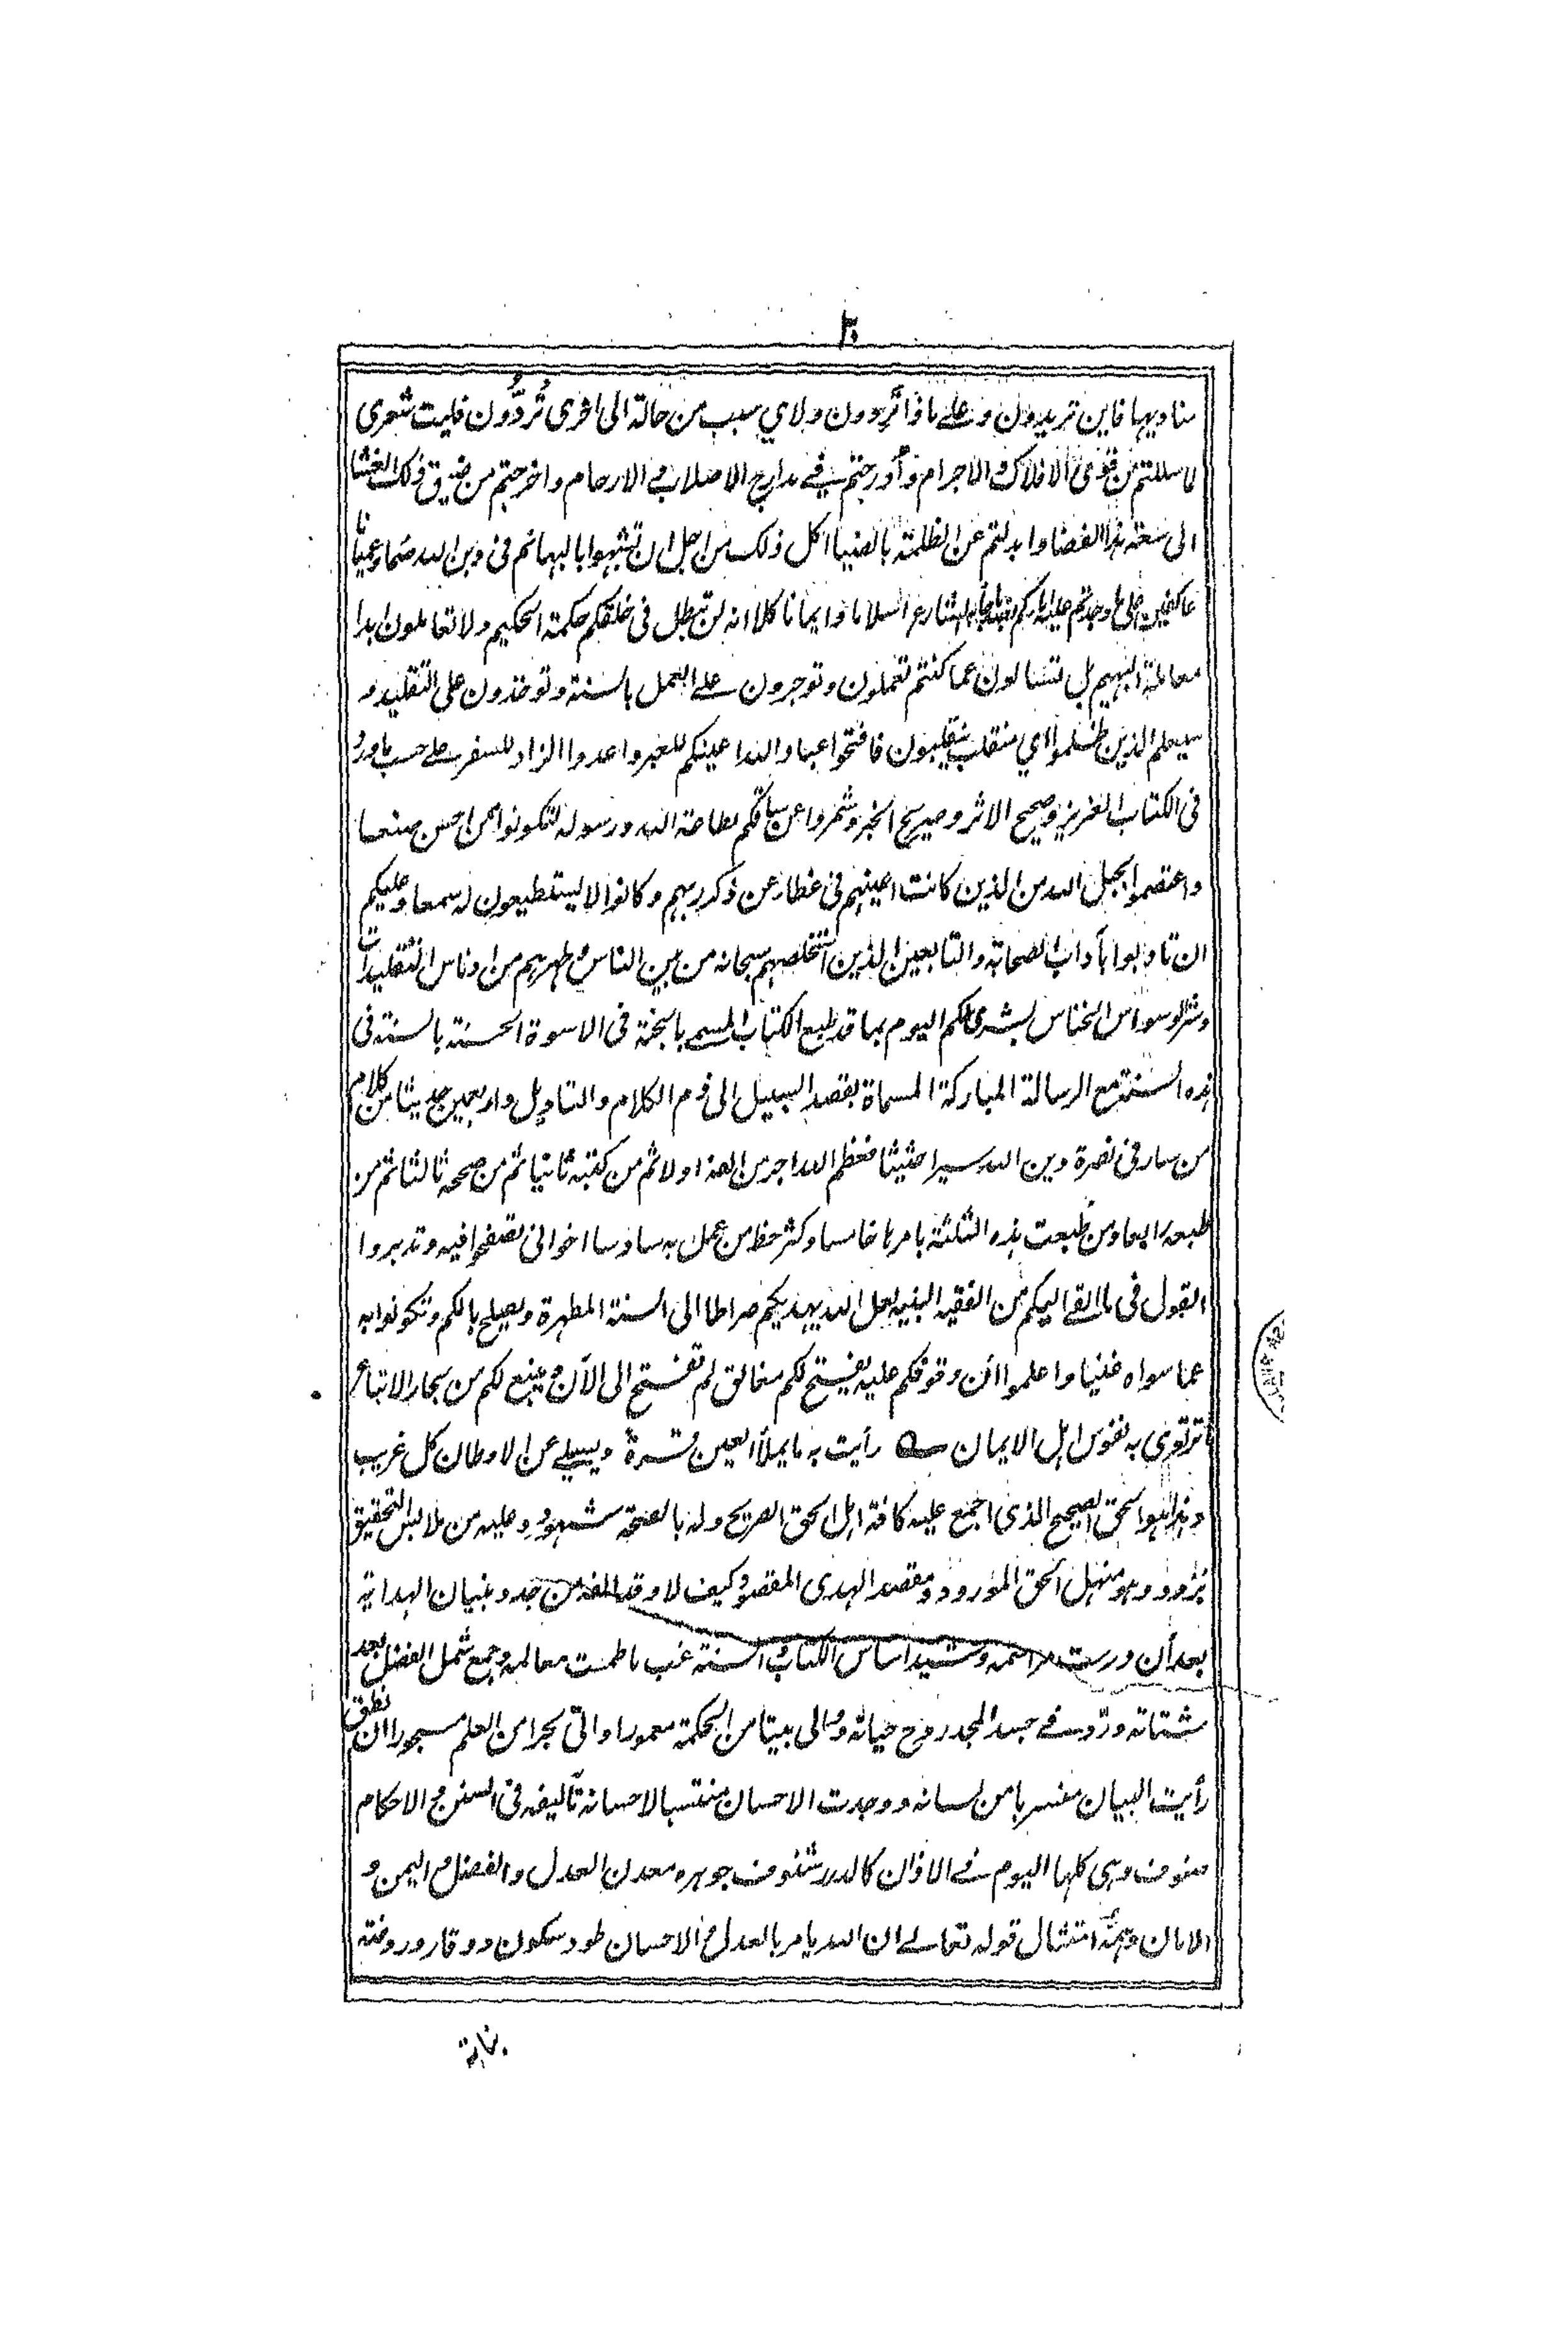 ٣٠
مناديها فاين تريدون وعلى ماذا تردون ولاي سبب من حالة الى اخرى تُردُّون فليت شعرى
لا سللتم من قوى الافلاك والاجرام وأدرجتم في مدارج الاصلاب والارحام واخرجتم من ضيق ذلك الغشا
الى سعة هذا الفضا وابدلتم عن الظلمة بالضيا اكل ذلك من اجل ان تشبهوا بالبهائم فى دين الله صما وعميانا
عاكفين على ما وجدتم عليه اباءكم الشارع اسلاما وايمانا كلا انه لن تبطل فى خلقكم حكمة الحكيم ولا تعاملون ابدا
معاملة البهيم بل تسئالون عما كنتم تعملون وتوجرون على العمل بالسنة وتوخذون على التقليد و
سيعلم الذين ظلموا اي منقلب ينقلبون فافتحوا عباد الله اعينكم للعبر واعدوا الزاد للسفر على حسب ما ورد
فى الكتاب العزيز وصحيح الاثر وصريح الخبر وشمروا عن ساقكم لطاعة الله ورسوله لتكونوا من احسن صنعا
واعتصموا بحبل الله من الذين كانت اعينهم فى غطاء عن ذكر ربهم وكانوا لا يستطيعون له سمعا وعليكم
ان تادبوا بآداب الصحابة والتابعين الذين استخلصهم سبحانه من بين الناس وطهرهم من ادناس التقليدات
وشر الوسواس الخناس بشرى لكم اليوم بما قد طبع الكتاب المسمى بالجنة فى الاسوة الحسنة بالسنة فى
هذه السنة مع الرسالة المباركة المسماة بقصد السبيل الى ذم الكلام والتاويل واربعين حديثا من كلام
من سار فى نصرة دين الله سيرا حثيثا فعظم الله اجر من الفه اولا ثم من كتبه ثانيا ثم من صححه ثالثا ثم من
طبعه رابعا ومن طبعت هذه الثلثة بامرها خامسا وكثر حظ من عمل به سادسا اخوانى تصفحوا فيه وتدبروا
القول فى ما القى اليكم من الفقيه النبيه لعل الله يهديكم صراطا الى السنة المطهرة ويصلح بالكم وتكونوا به
عما سواه غنيا واعلموا أن وقوفكم عليه يفتح لكم مغالق لم تفتح الى الآن وينبع لكم من بحار الاتباع
ما ترتوى به نفوس اهل الايمان ــه رأيت به ما يملأ العين قرة ويسلى عن الاوطان كل غريب
وهذا هو الحق الصحيح الذى اجمع عليه كافة اهل الحق الصريح وله بالصحة شهود وعليه من ملابس التحقيق
برود وهو منهل الحق المورود ومقصد الهدى المقصود وكيف لا وقد الفه من جدد بنيان الهداية
بعد أن درست مراسمه وشيد اساس الكتاب والسنة غب ما طمست معالمه وجمع شمل الفضل بعد
شتاته وردّ فى جسد المجد روح حياته ووالى بيتا من الحكمة معمورا واتى بحرا من العلم مسجورا ان نطق
رأيت البيان منسربا من لسانه ووجدت الاحسان منتسبا لاحسانه تآليفه فى السنن والاحكام
صنوف وهى كلها اليوم فى الاذان كالدرر شنوف جوهره معدن العدل والفضل واليمن و
الامان امتثال قوله تعالى ان الله يامر بالعدل والاحسان طود سكون ووقار وروضة
نباته